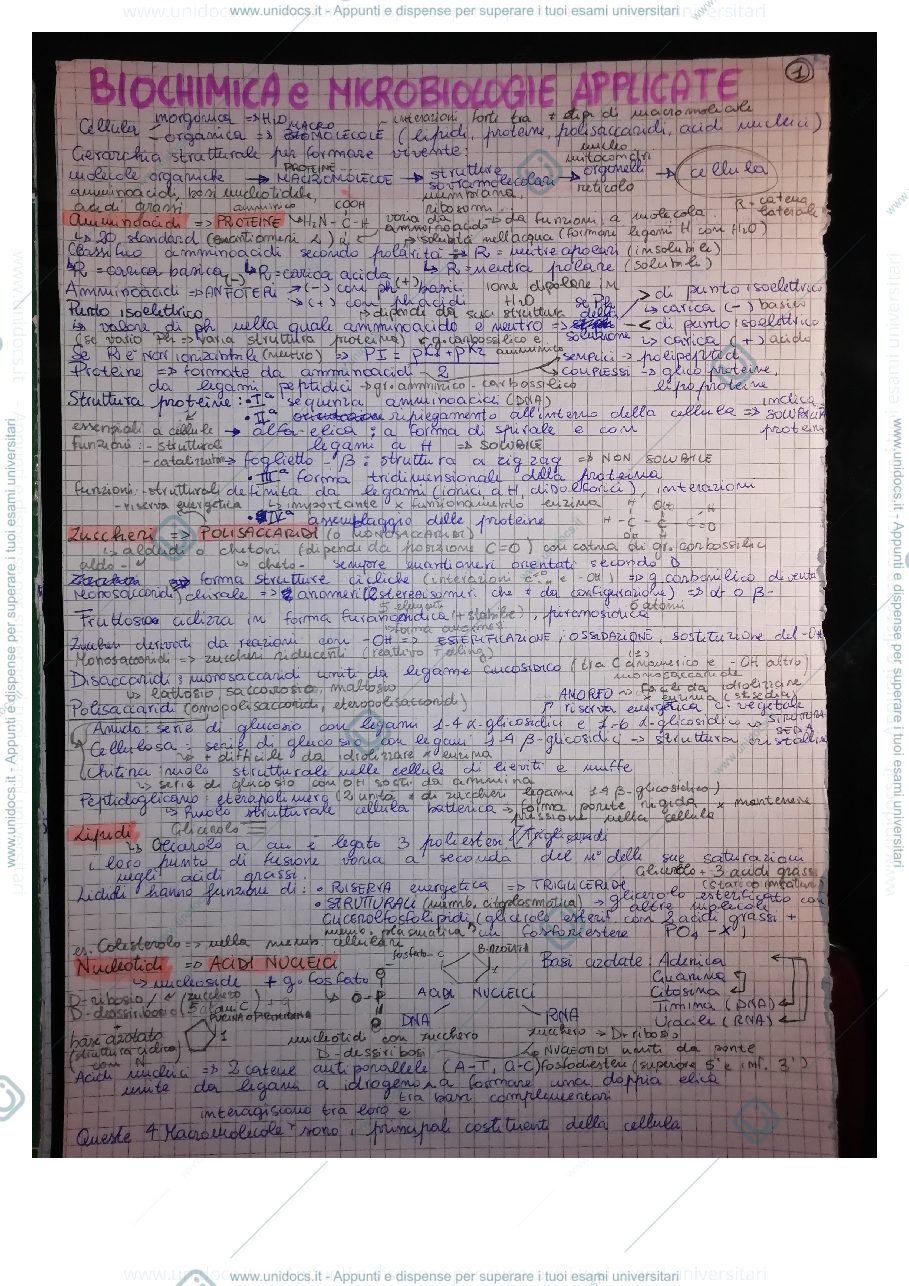 www.unidocs.it - Appunti e dispense per superare i tuoi esami universitari
1
BIOCHIMICA e MICROBIOLOGIE APPLICATE
Cellula inorganica => H2O interazioni forti tra ≠ tipi di macromolecole
organica => MACRO BIOMOLECOLE (lipidi, proteine, polisaccaridi, acidi nucleici)
Gerarchia strutturale per formare vivente:
molecole organiche → PROTEINE MACROMOLECOLE → strutture sovramolecolari → nucleo mitocondri organelli reticolo → cellula
amminoacidi, basi nucleotidiche, acidi grassi
membrana, ribosomi
Amminoacidi => PROTEINE H2N - C - H COOH R varia da amminoacido → da funzioni a molecola. R = catena laterale
↳ 20 standard solubilità nell'acqua (formare legami H con H2O)
Classifico amminoacidi secondo polarità => R = neutre apolari (insolubile)
↳ R = carica basica ↳ R = carica acida ↳ R = neutra polare (solubile)
Amminoacidi => ANFOTERI → (-) con ph basici ione dipolare in H2O
→ (+) con ph acidi
Punto isoelettrico → dipende da sua struttura
↳ valore di ph nella quale amminoacido è neutro => se Ph della soluzione > di punto isoelettrico ↳ carica (-) basico
< di punto isoelettrico ↳ carica (+) acido
(se vario Ph => varia struttura proteina) g. carbossilico e amminico
Se R è non ionizzabile (neutro) => PI = pK1 + pK2 / 2
Proteine => formate da amminoacidi SEMPLICI → polipeptidi
da legami peptidici → gr. amminico - carbossilico COMPLESSI → glico proteine, lipo proteine
Struttura proteine: • Iª sequenza amminoacidi (DNA)
• IIª ripiegamento all'interno della cellula => indica SOLUBILITÀ proteina
essenziali a cellule → alfa-elica: a forma di spirale e con legami a H => SOLUBILE
funzioni: - strutturali
- catalizzatori → foglietto-β: struttura a zig zag => NON SOLUBILE
• IIIª forma tridimensionale della proteina
funzioni: - strutturali definita da legami (ionici, a H, disolforici), interazioni
- riserva energetica ↳ importante x funzionamento enzima
• IVª assemblaggio delle proteine
Zuccheri => POLISACCARIDI (o MONOSACCARIDI)
↳ aldeidi o chetoni (dipende da posizione C=O) con catena di gr. carbossilici
aldo- cheto- sempre quantiomeri orientati secondo D
Monosaccaridi forma strutture cicliche (interazioni C=O e -OH) => g. carbonilico diventa
chirale => 2 anomeri (stereoisomeri che ≠ da configurazione) => α o β-
Fruttosio ciclizza in forma 5 elementi furanosidica (+ stabile), piranosidica 6 atomi
Zuccheri derivati da reazioni con -OH => ESTERIFICAZIONE, OSSIDAZIONE, sostituzione del -OH
Monosaccaridi => zuccheri riducenti (reattivo Fehling)
Disaccaridi: monosaccaridi uniti da legame glicosidico (tra C anomerico e -OH altro) monosaccaride
↳ lattosio, saccarosio, maltosio
Polisaccaridi (omopolisaccaridi, eteropolisaccaridi) AMORFO → facile da idrolizzare x enzima
riserva energetica c. vegetale
Amido: serie di glucosio con legami 1-4 α-glicosidici e 1-6 α-glicosidici
Cellulosa: serie di glucosio con legami 1-4 β-glicosidici → struttura cristallina
↳ + difficile da idrolizzare x enzima
Chitina ruolo strutturale nelle cellule di lieviti e muffe
↳ serie di glucosio con OH sost. da ammina
Peptidoglicano: eteropolimero (2 unità ≠ di zuccheri legame 1-4 β-glicosidico)
↳ Ruolo strutturale cellula batterica → forma parete rigida x mantenere pressione nella cellula
Lipidi Glicerolo
↳ Glicerolo a cui è legato 3 poliesteri (Trigliceridi
loro punto di fusione varia a seconda del n° delle sue saturazioni
negli acidi grassi. Glicerolo + 3 acidi grassi
Lipidi hanno funzione di: • RISERVA energetica => TRIGLICERIDI
• STRUTTURALI (memb. citoplasmatica) → glicerolo esterificato con altre molecole
GLICEROLFOSFOLIPIDI (glicerolo ester. con 2 acidi grassi +
memb. plasmatica un fosforiestere PO4 - X)
es. Colesterolo => nella memb. cellulare
Nucleotidi => ACIDI NUCLEICI fosfato - C B-AZOTATA 1 Basi azotate: Adenica
↳ nucleoside + g. fosfato Guanina
D-ribosio / (zucchero) D-deossiribosio ↳ O-P ACIDI NUCLEICI Citosina
PURINA o PIRIMIDINA DNA RNA Timina (DNA)
+ base azotata (struttura ciclica) 1 Uracile (RNA)
nucleotidi con zucchero D-dessiribosi zucchero → D-ribosio
↳ NUCLEOTIDI uniti da ponte fosfodiestere (superiore 5' e inf. 3')
Acidi nucleici => 2 catene antiparallele (A-T, G-C)
unite da legami a idrogeno a formare una doppia elica
tra basi complementari
interagiscono tra loro e
Queste 4 Macromolecole sono i principali costituenti della cellula
www.unidocs.it - Appunti e dispense per superare i tuoi esami universitari